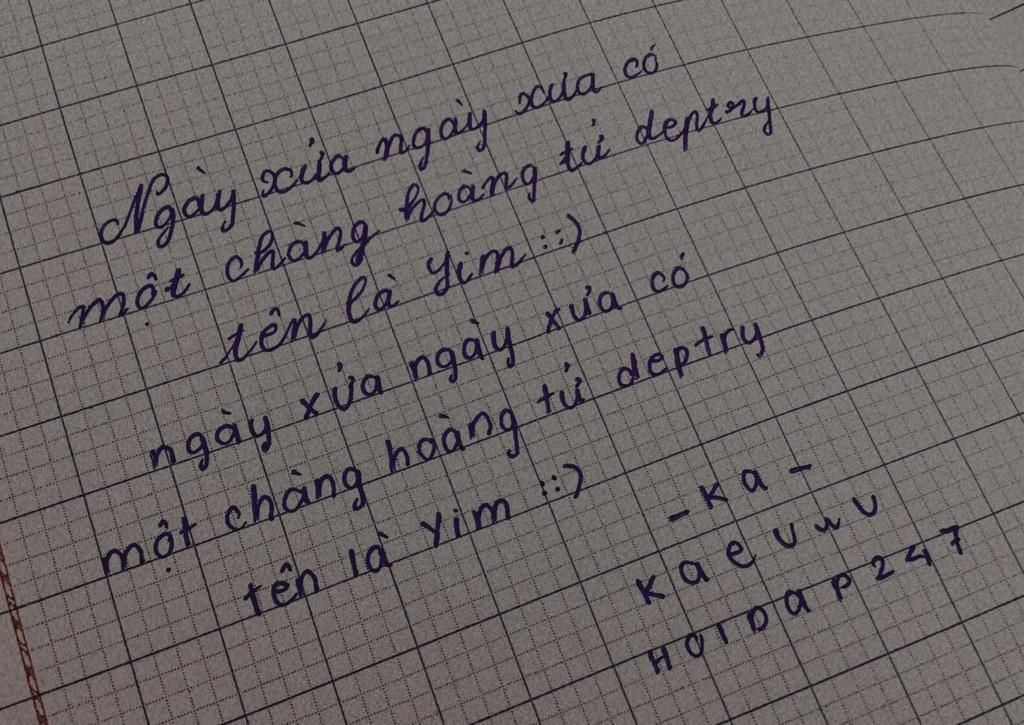 Ngày xửa ngày xưa có
một chàng hoàng tử deptry
tên là Yim ::)
ngày xửa ngày xưa có
một chàng hoàng tử deptry
tên là Yim ::)
- Ka -
Kaeuwu
HOIDAP247